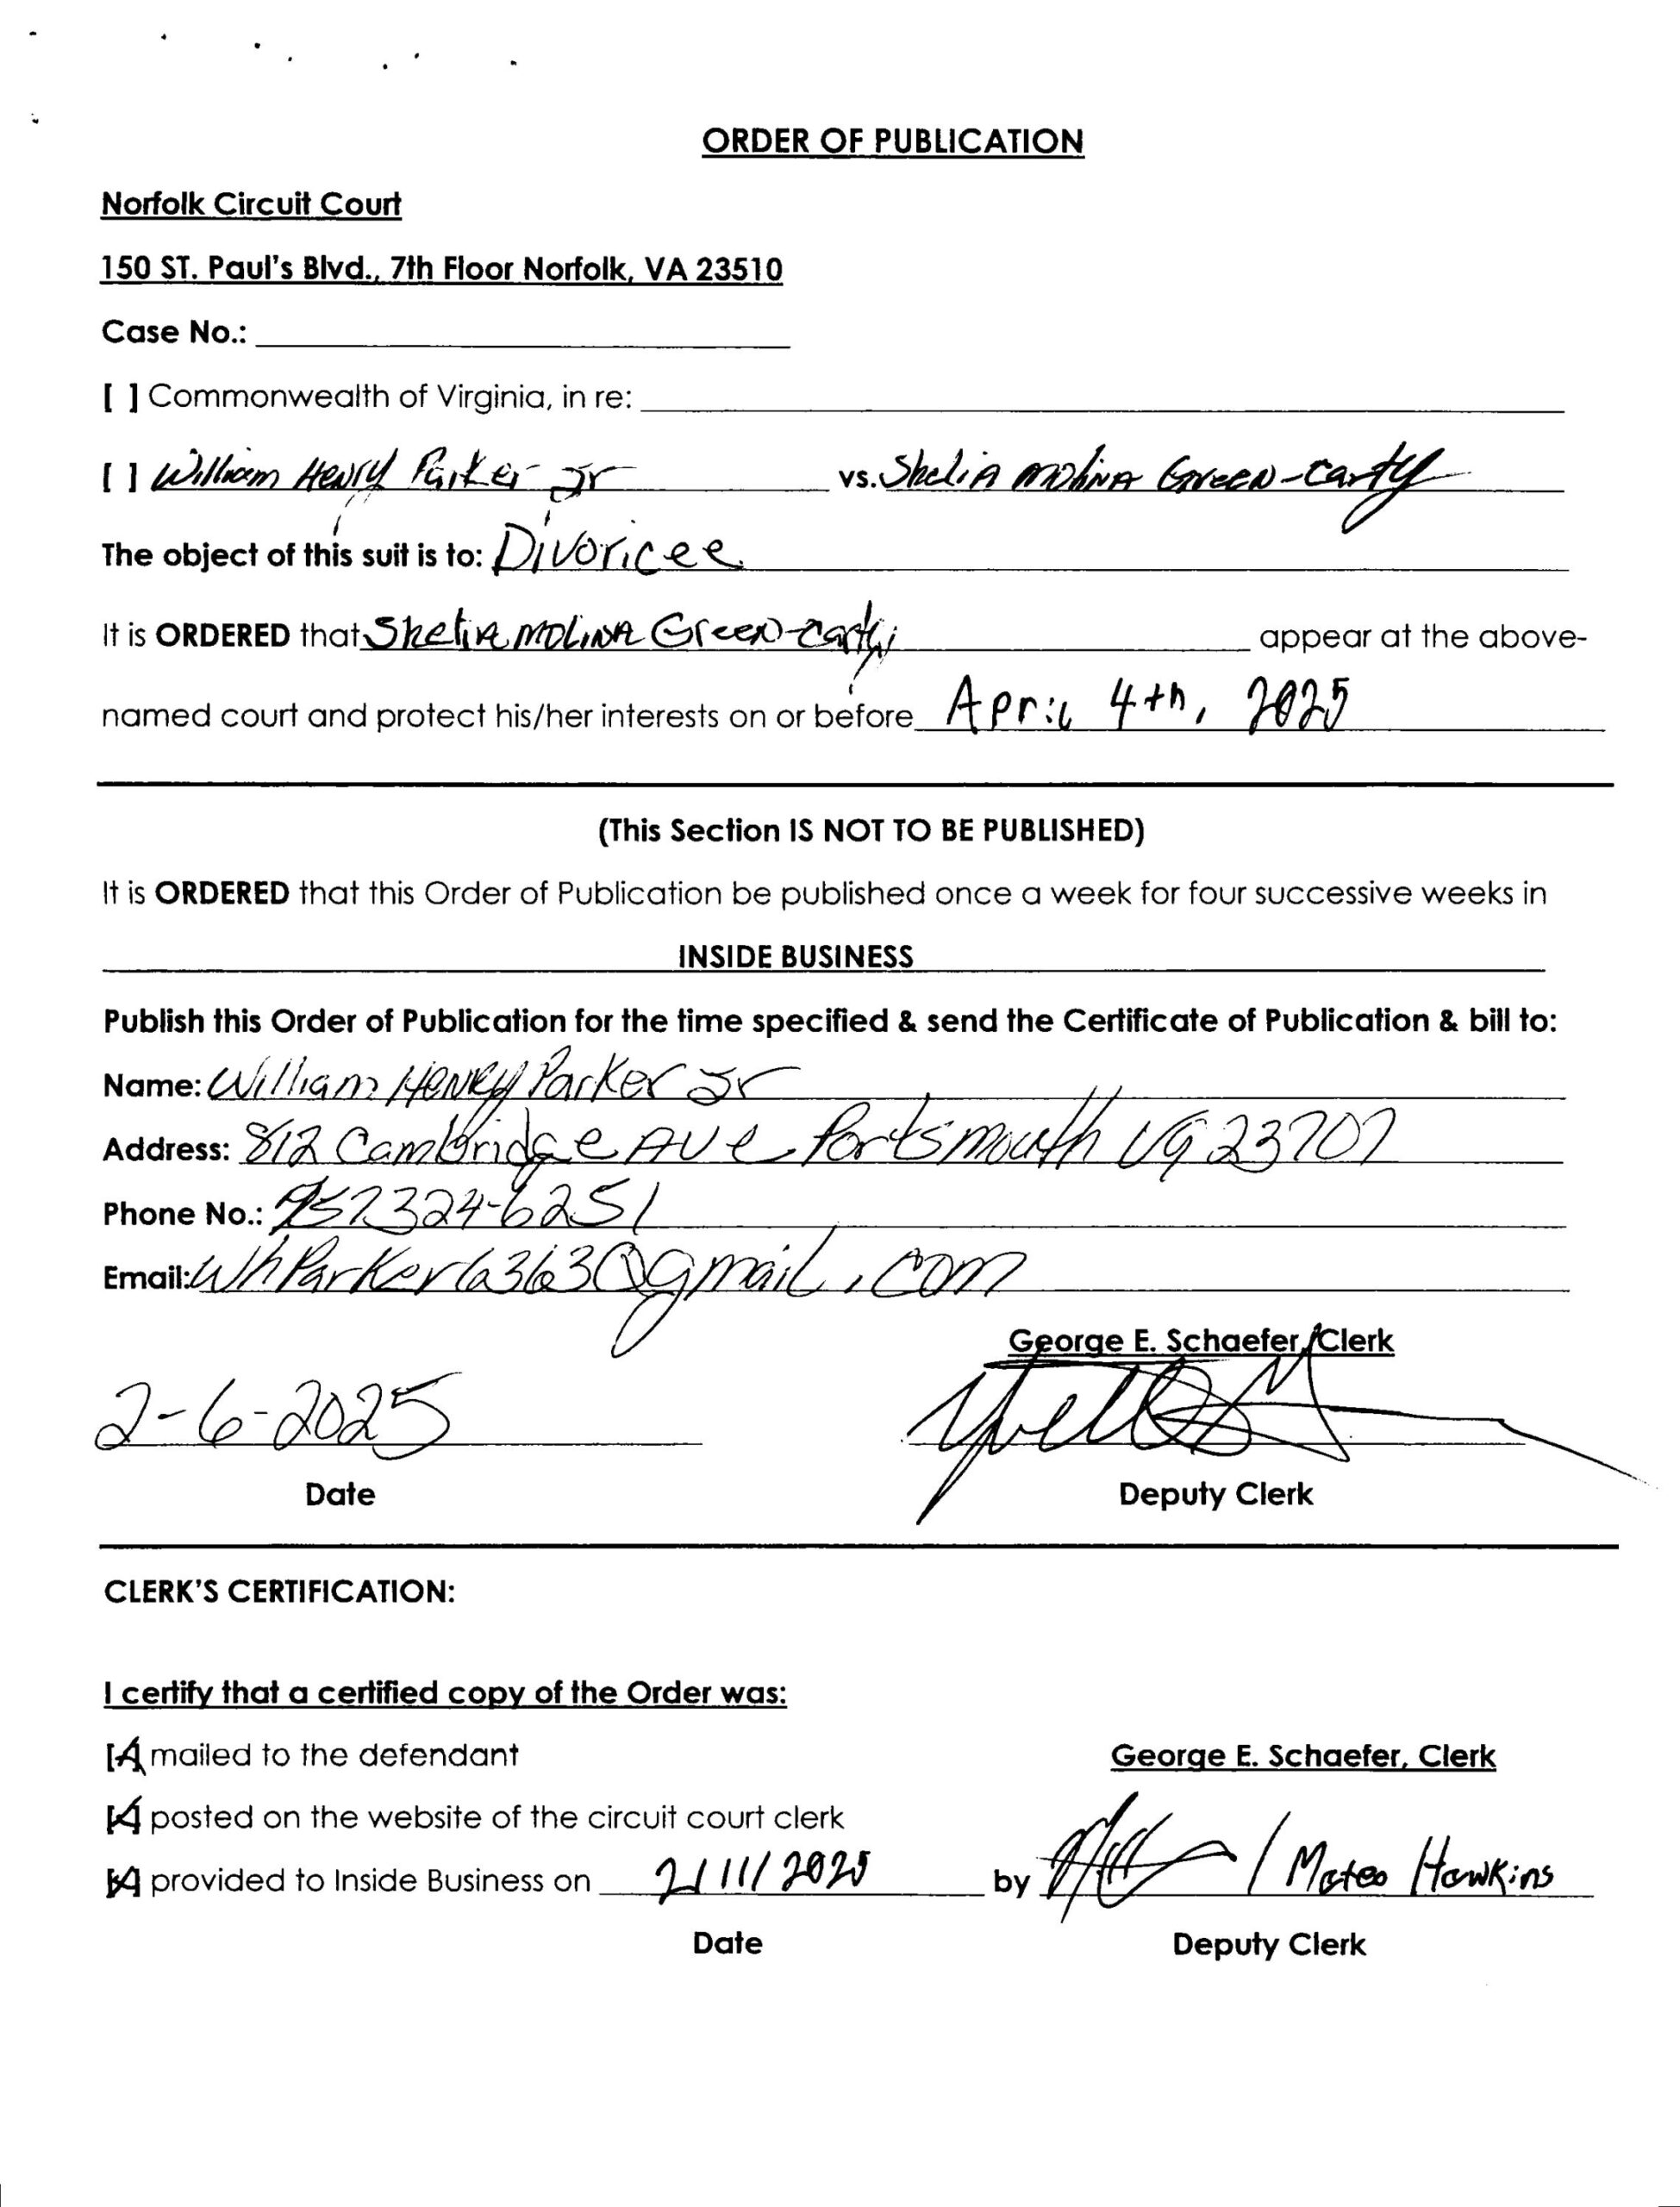 ORDER OF PUBLICATION
Norfolk Circuit Court
150 ST. Paul's Blvd., 7th Floor Norfolk, VA 23510
Case No.:
[ ] Commonwealth of Virginia, in re:
[ ] William Henry Parker Jr vs. Shelia Molina Green-Carty
The object of this suit is to: Divoricee
It is ORDERED that Shelia Molina Green-Carty appear at the above-
named court and protect his/her interests on or before April 4th, 2025
(This Section IS NOT TO BE PUBLISHED)
It is ORDERED that this Order of Publication be published once a week for four successive weeks in
INSIDE BUSINESS
Publish this Order of Publication for the time specified & send the Certificate of Publication & bill to:
Name: William Henry Parker Jr
Address: 812 Cambridge Ave Portsmouth Va 23707
Phone No.: 757 324-6251
Email: WhParker6363@gmail.com
George E. Schaefer, Clerk
2-6-2025
Date Deputy Clerk
CLERK'S CERTIFICATION:
I certify that a certified copy of the Order was:
[x] mailed to the defendant George E. Schaefer, Clerk
[x] posted on the website of the circuit court clerk
[x] provided to Inside Business on 2/11/2025 by / Mateo Hawkins
Date Deputy Clerk